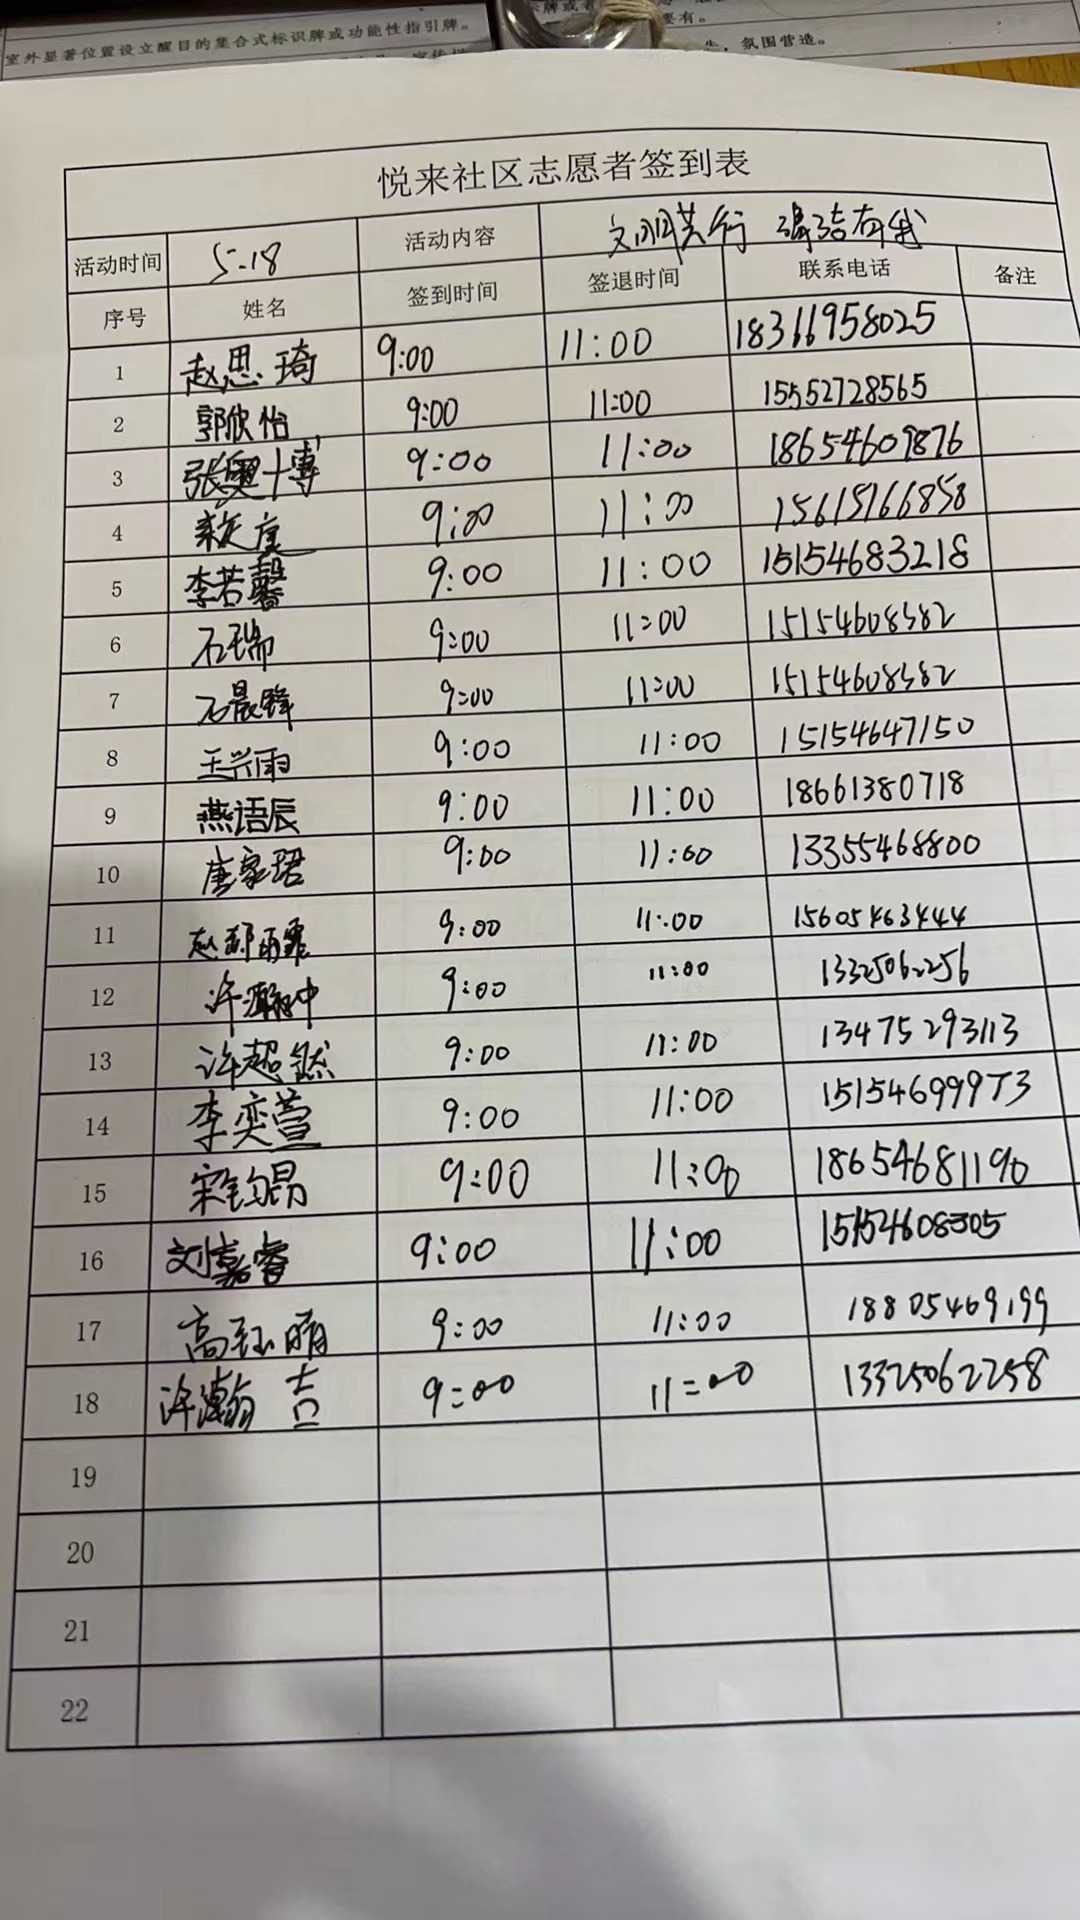 室外显著位置设立醒目的集合式标识牌或功能性指引牌。
氛围营造。
悦来社区志愿者签到表
活动时间 5.18 活动内容 文明其行 清洁有我
序号 姓名 签到时间 签退时间 联系电话 备注
1 赵思琦 9:00 11:00 18311958025
2 郭欣怡 9:00 11:00 15552728565
3 张奥博 9:00 11:00 18654609876
4 9:00 11:00 15615166858
5 李若馨 9:00 11:00 15154683218
6 石瑞 9:00 11:00 15154608382
7 石晨锋 9:00 11:00 15154608382
8 王兴雨 9:00 11:00 15154647150
9 燕语辰 9:00 11:00 18661380718
10 唐家珺 9:00 11:00 13355468800
11 赵郑雨霏 9:00 11:00 15605463444
12 许瀚中 9:00 11:00 13325062256
13 许超然 9:00 11:00 13475293113
14 李奕萱 9:00 11:00 15154699973
15 宋钧昂 9:00 11:00 18654681190
16 刘嘉睿 9:00 11:00 15154608305
17 高钰晴 9:00 11:00 18805469199
18 许瀚吉 9:00 11:00 13325062258
19
20
21
22